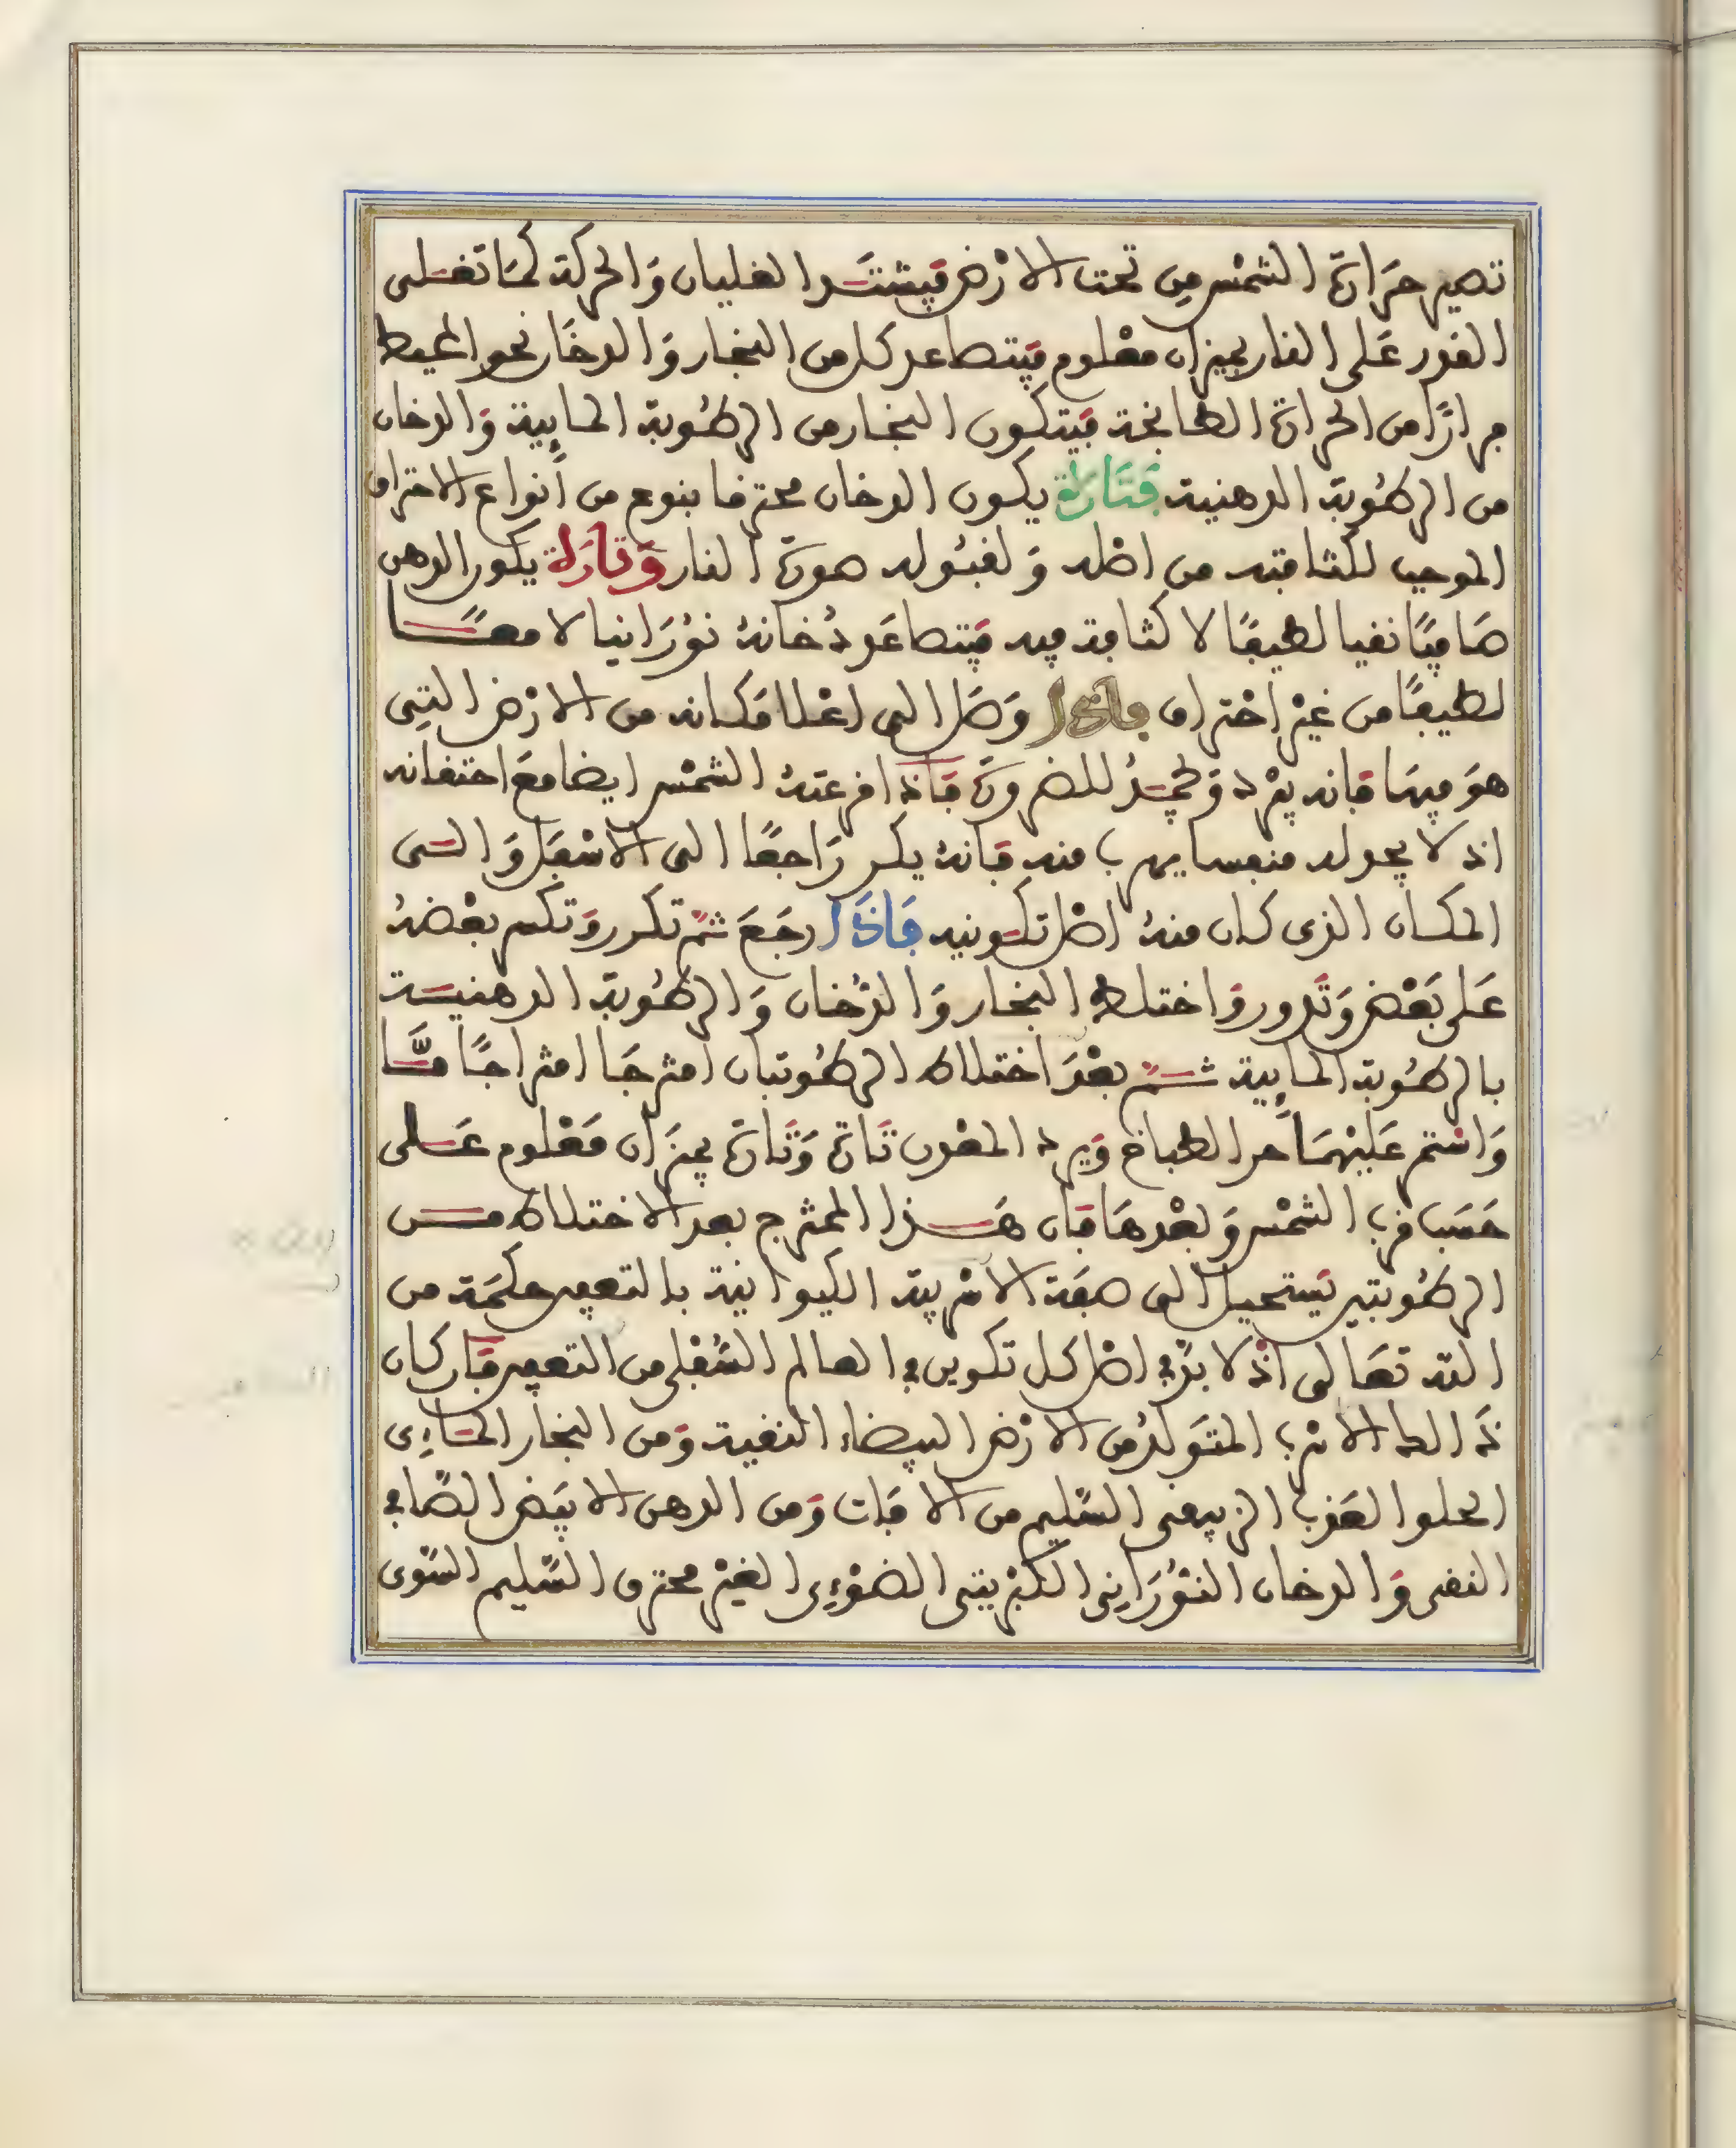 تصير حَرَارَة الشمْس مِن تحت الارْض فيشتَد الغليان وَالحركة كمَا تغلى
القدر عَلى النار بميزان معْلوم فيتصاعد كل من البخار وَالدخَان نحو المحيط
مرارًا من الحرارة الطابخة فيَتكون البخار من الرطُوبة المايِية وَالدخان
من الرطُوبة الدهنية فَتَارَة يكون الدخان محترقا بنوع من أنواع الاحتراق
الموجب لكثافته من اصْله وَلقبُوله صورَة النار وَتارَة يكون الدهن
صَافيًا نقيا لطيفًا لا كثافة فيه فيَتصاعَد دُخانهُ نوُرَانيا لا معًا
لطيفًا من غيْر اِحْتراق فاذا وَصَل الى اعْلا مَكانه من الارْض التِى
هوَ فيهَا فانه يبْرد وَيجمُدُ للضرورَة فاذا قرعتهُ الشمْس ايضا معَ احتقانه
اذ لا يجد له منفسا يهرب منه فانهُ يكر رَاجعًا الى الاسْفَل وَالى
المكان الذى كان منهُ اصْل تكوينه فَاذَا رجَعَ ثمَّ تكرر وَتكسر بعْضهُ
عَلى بَعْض وَتدور وَاختلط البخار وَالدُخان وَالرطُوبة الدهنية
بالرطُوبة المايِية ثمَّ بعْدَ اختلاط الرطُوبتان امتزجَا امتزاجًا مَّا
وَاسْتمر عَليْهمَا حر الطباخ وَبرد المعْدن تَارَة وَتَارَة بميزَان مَعْلوم عَلى
حَسَب قرب الشمْس وَبعْدهَا فان هَذا الممتزج بعد الاختلاط من
الرطُوبتين يَستحيل الى صفَة الاسْربية الكيوانية بالتعفين حكمَة من
الله تعَالى اذ لا بدَّ في اصْل كل تكوين في العالم السُّفلى من التعفين فان كان
ذَالك الاسْرب المتوَلدُ من الارْض البيضاء النقية وَمن البخار المَائِى
الحلو العَذب الزيبقى السَّليم من الافَات وَمن الدهن الابيَض الصَّافي
النقى وَالدخان النوُرَانِى الكبْريتى الضوْءِى الغيْر محترق السَّليم السَّوى